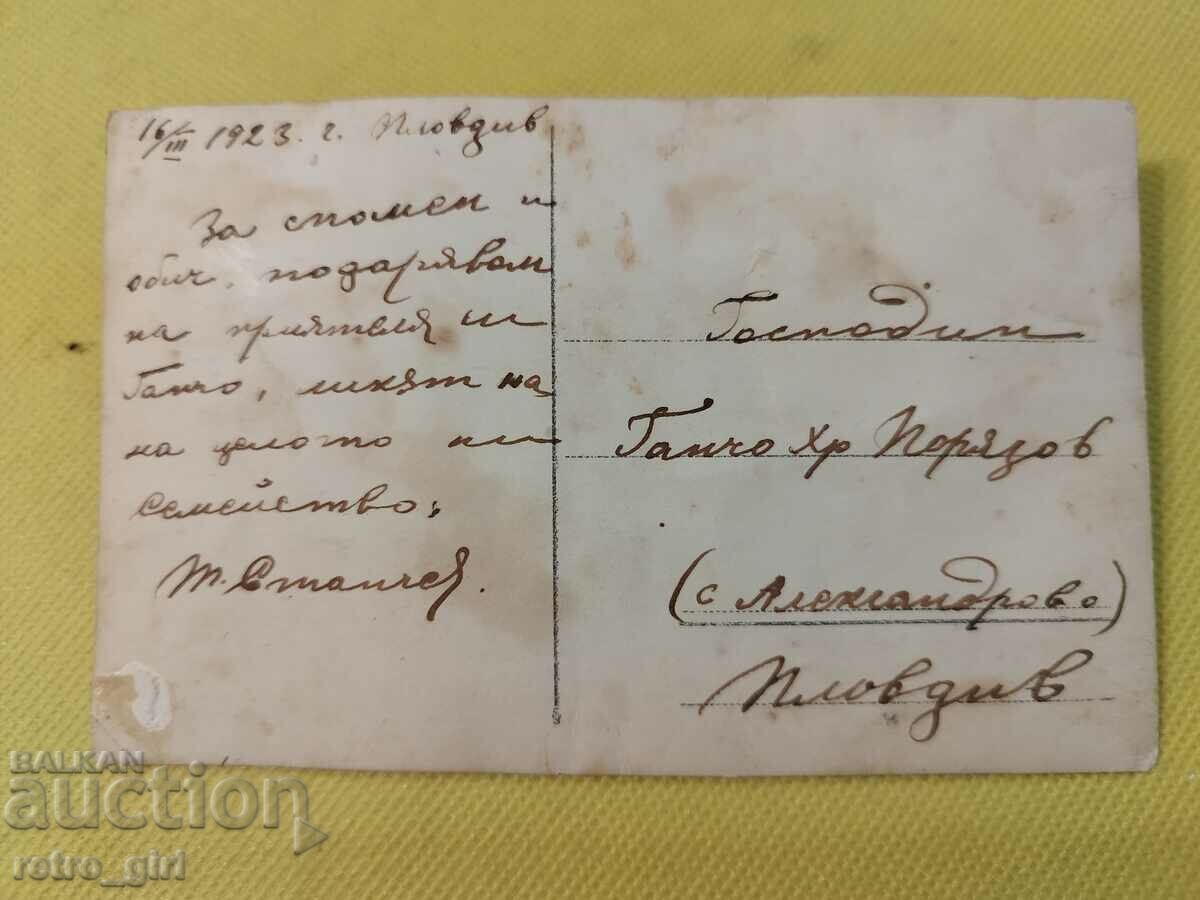 16/III 1923. г. Пловдив
За спомен и
обич, подарявам
на приятеля ни
Ганчо, ликът на
на целото ни
семейство.
Т. Станчев.
Господин
Ганчо Хр Порязов
(с Александрово)
Пловдив
BALKAN
auction
retro_girl